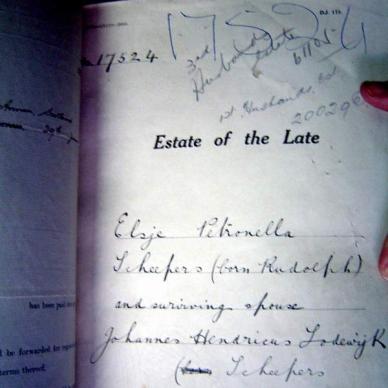 No. 17524
17524
3rd
Husbands
Estate
61105
1st Husbands Est
20029
Estate of the Late
Elsje Petronella
Scheepers (born Rudolph)
and surviving spouse
Johannes Hendricus Lodewijk
Scheepers
has been paid
d be forwarded to
terms thereof.